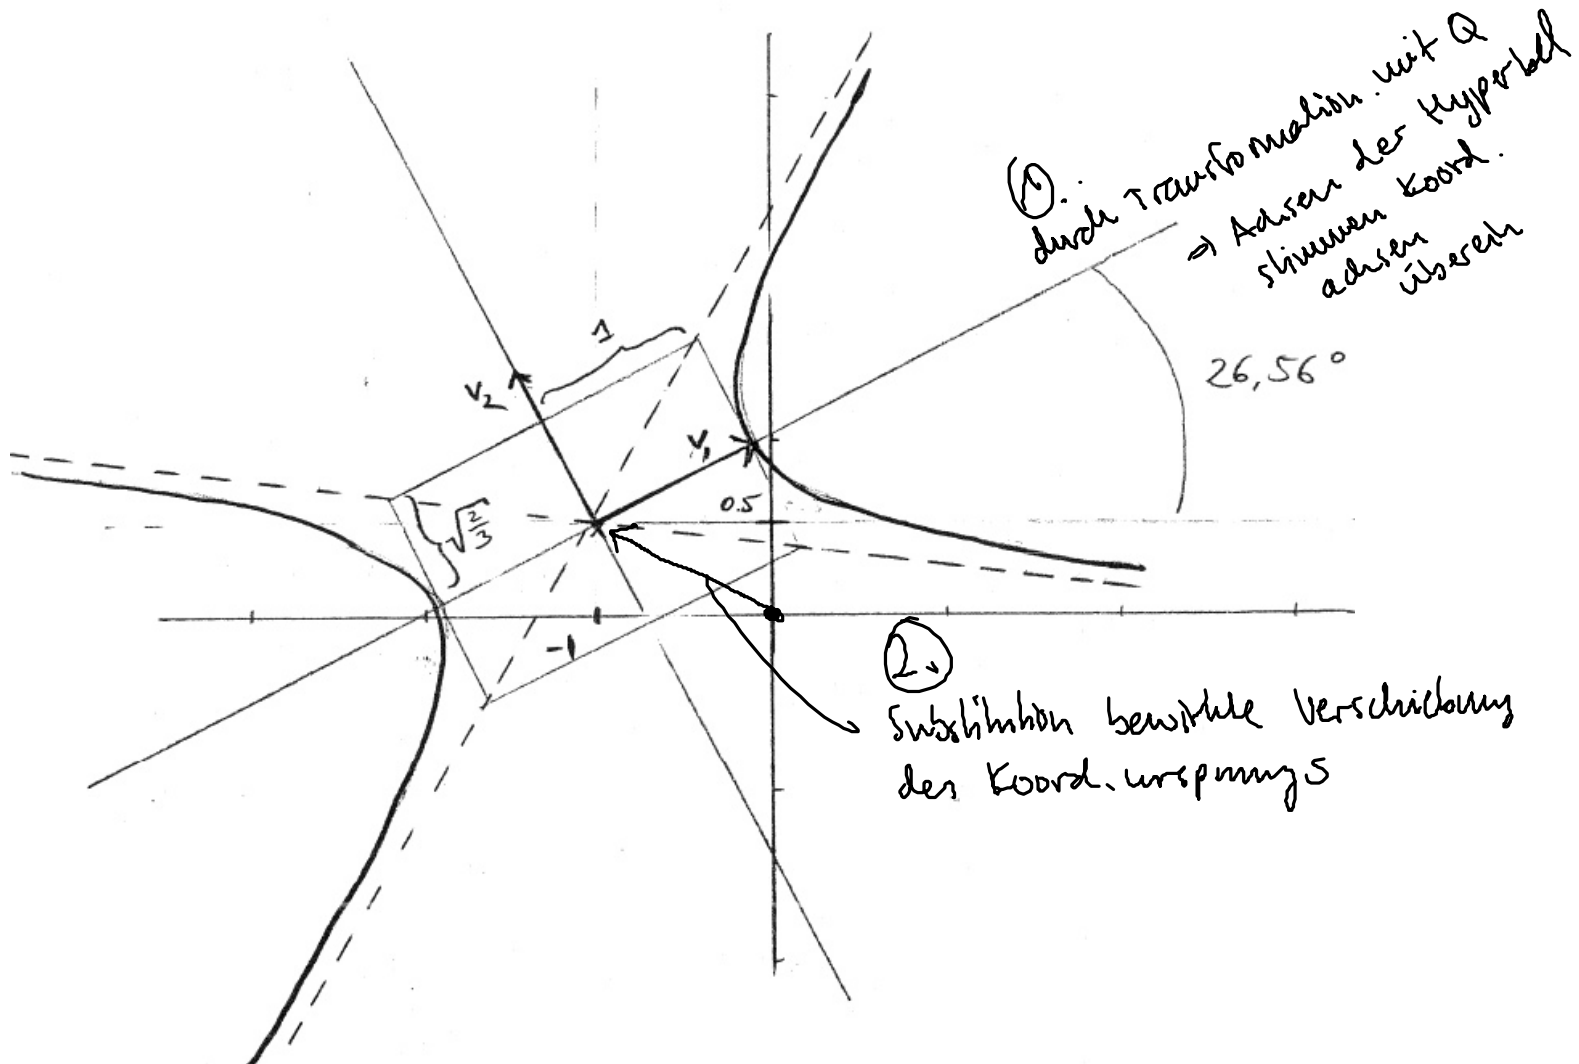 ①.
durch Transformation mit Q
⇒ Achsen der Hyperbel
stimmen Koord.
achsen
überein
26,56°
1
v₂
v₁
0.5
√(2/3)
-1
②.
Substitution bewirkte Verschiebung
des Koord.ursprungs